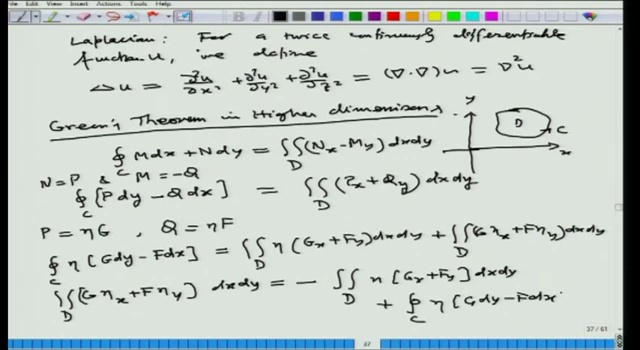 File Edit View Insert Actions Tools Help
Laplacian: For a twice continuously differentiable
function u, we define
Δu = ∂²u/∂x² + ∂²u/∂y² + ∂²u/∂z² = (∇·∇)u = ∇²u
Green's Theorem in Higher dimensions
y
D
C
x
∮_C Mdx + Ndy = ∬_D (N_x - M_y) dxdy
N = P & M = -Q
∮_C [Pdy - Qdx] = ∬_D (P_x + Q_y) dxdy
P = ηG , Q = ηF
∮_C η[Gdy - Fdx] = ∬_D η(G_x + F_y) dxdy + ∬_D (Gη_x + Fη_y) dxdy
∬_D [Gη_x + Fη_y] dxdy = - ∬_D η[G_x + F_y] dxdy
+ ∮_C η[Gdy - Fdx
37 / 61
37